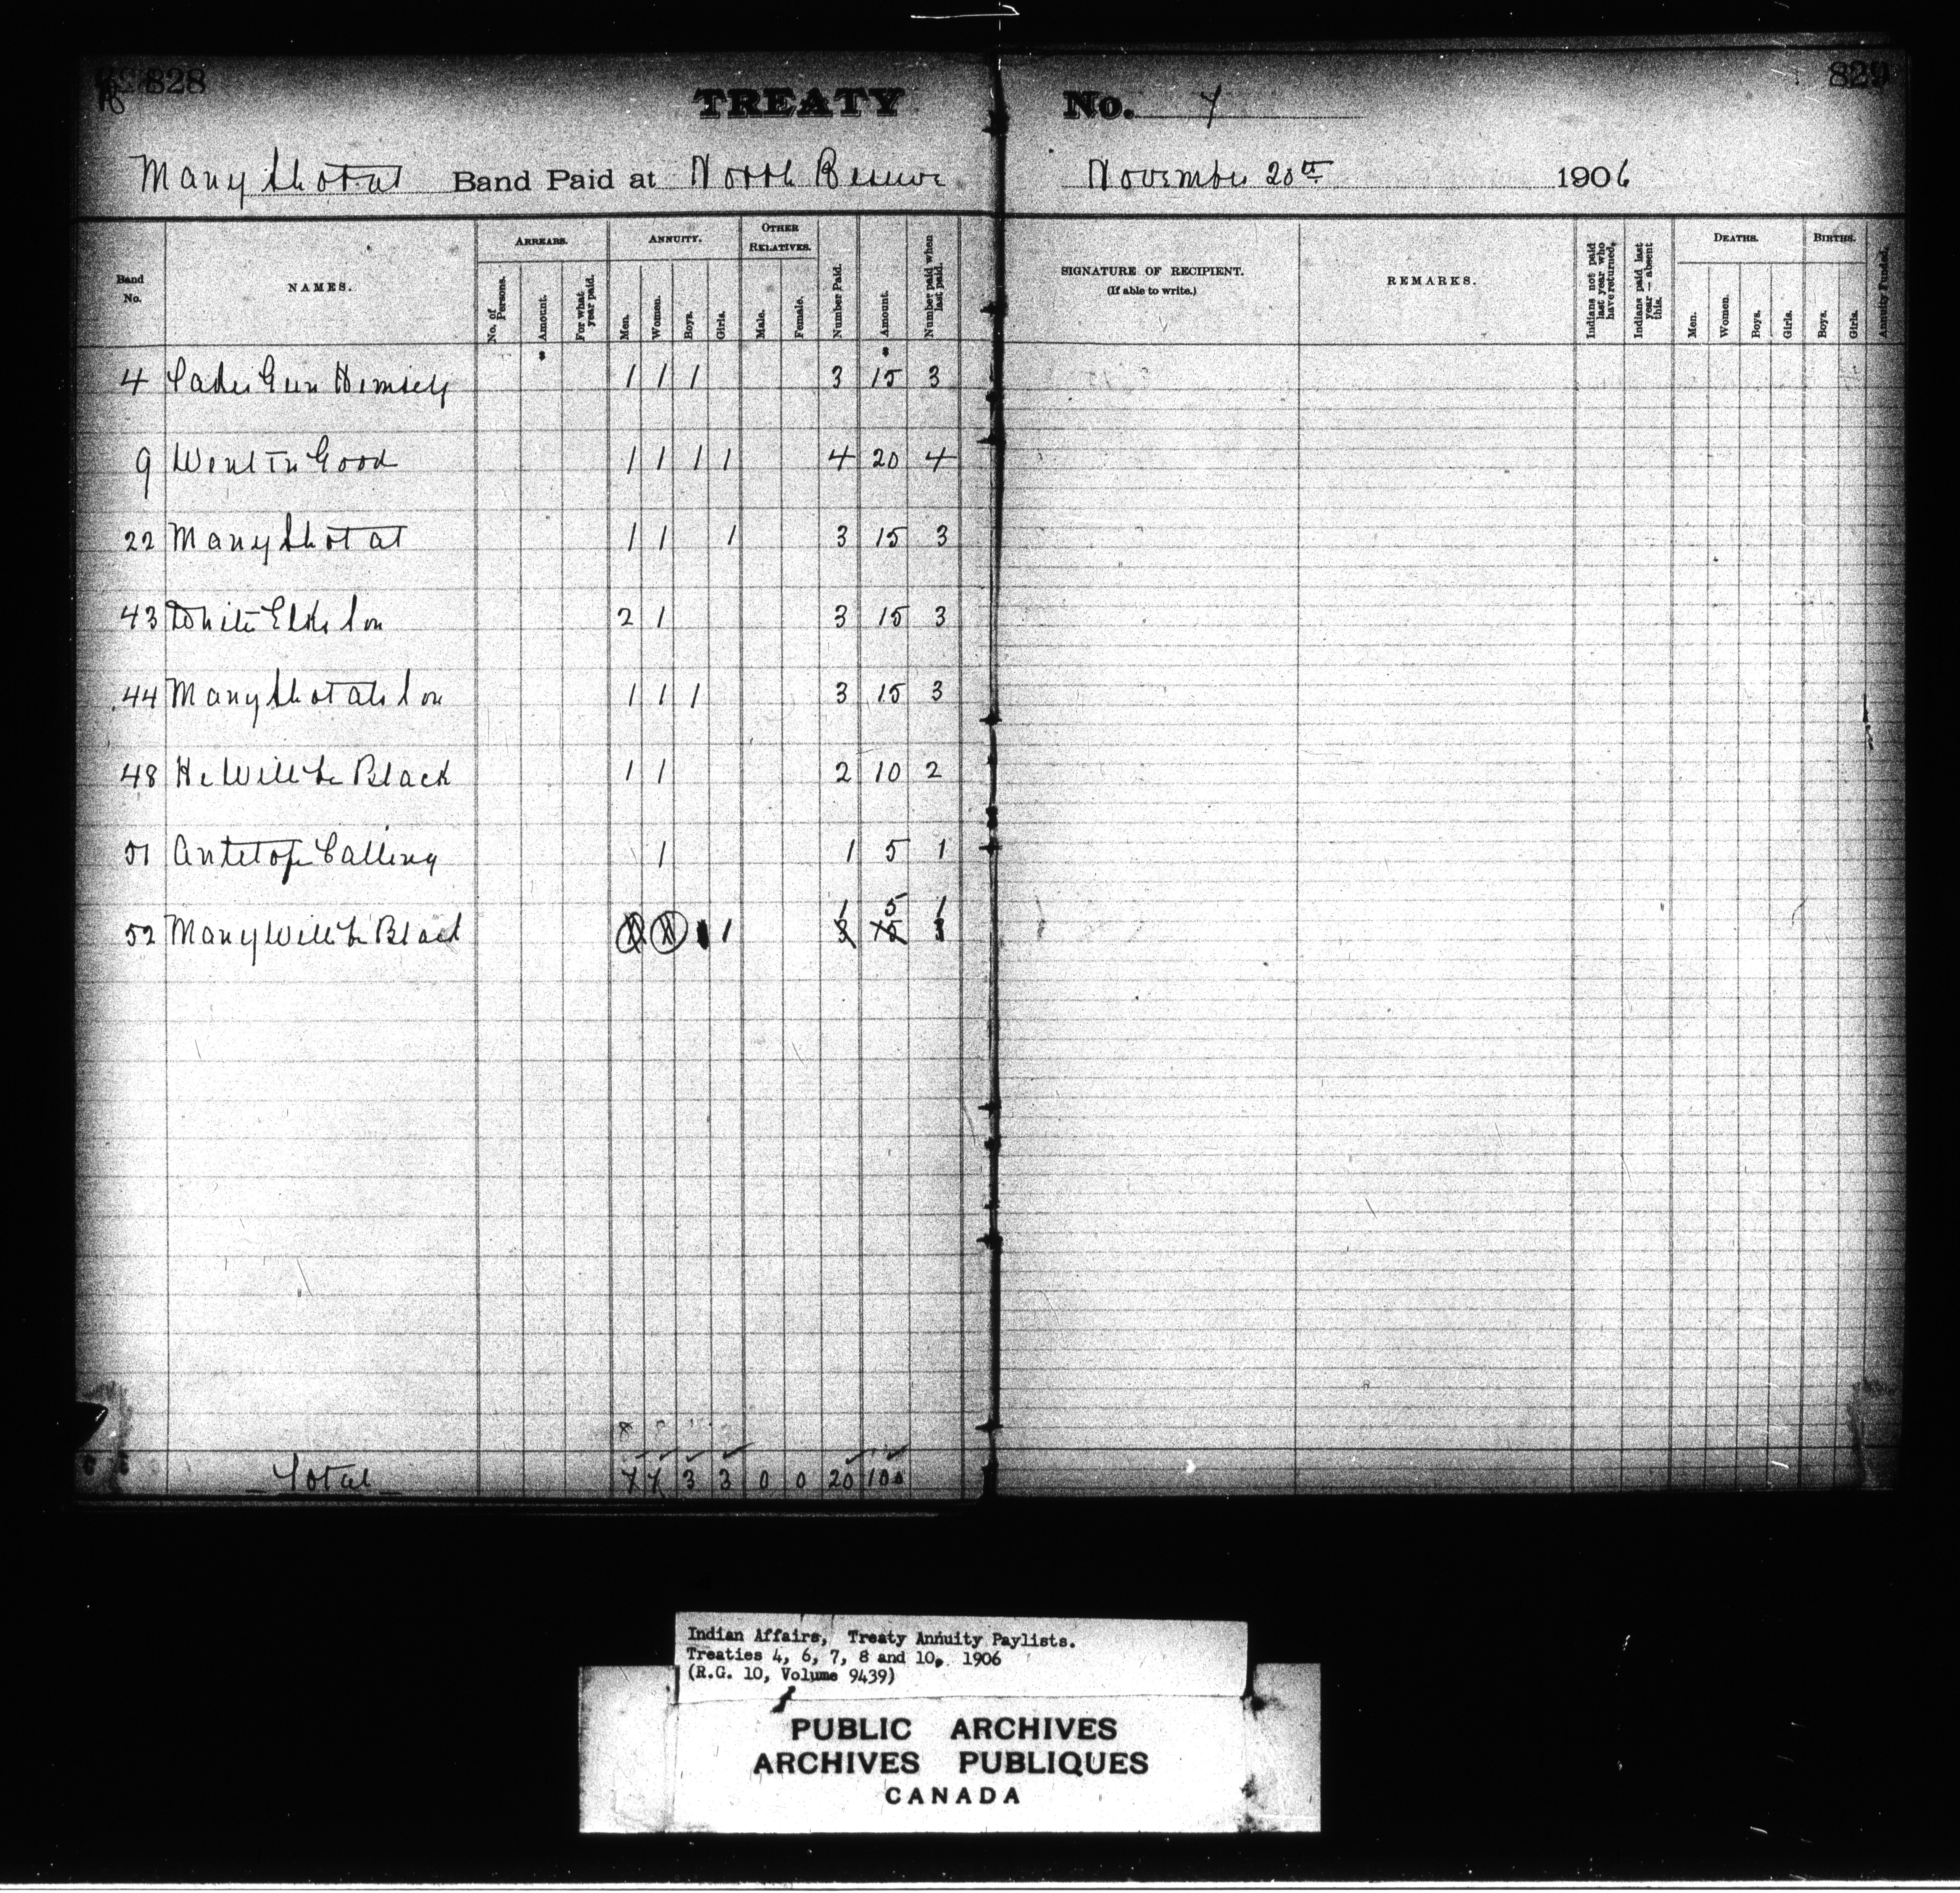 828
829
TREATY No. 7
Many Shot at Band Paid at North Reserve November 20th 1906
Band No.
NAMES.
ARREARS.
No. of Persons.
Amount.
For what year paid.
ANNUITY.
Men.
Women.
Boys.
Girls.
OTHER RELATIVES.
Male.
Female.
Number Paid.
Amount.
Number paid when last paid.
SIGNATURE OF RECIPIENT.
(If able to write.)
REMARKS.
Indians not paid last year who have returned.
Indians paid last year — absent this.
DEATHS.
Men.
Women.
Boys.
Girls.
BIRTHS.
Boys.
Girls.
Annuity Funded.
4 Takes Gun Himself 1 1 1 3 15 3
9 Went in Good 1 1 1 1 4 20 4
22 Many Shot at 1 1 1 3 15 3
43 White Elks Son 2 1 3 15 3
44 Many Shot ats Son 1 1 1 3 15 3
48 He Will be Black 1 1 2 10 2
51 Antelope Calling 1 1 5 1
1 5 1
52 Many Will be Black 1 3 15 3
Total 7 7 3 3 0 0 20 100
Indian Affairs, Treaty Annuity Paylists.
Treaties 4, 6, 7, 8 and 10, 1906
(R.G. 10, Volume 9439)
PUBLIC ARCHIVES
ARCHIVES PUBLIQUES
CANADA